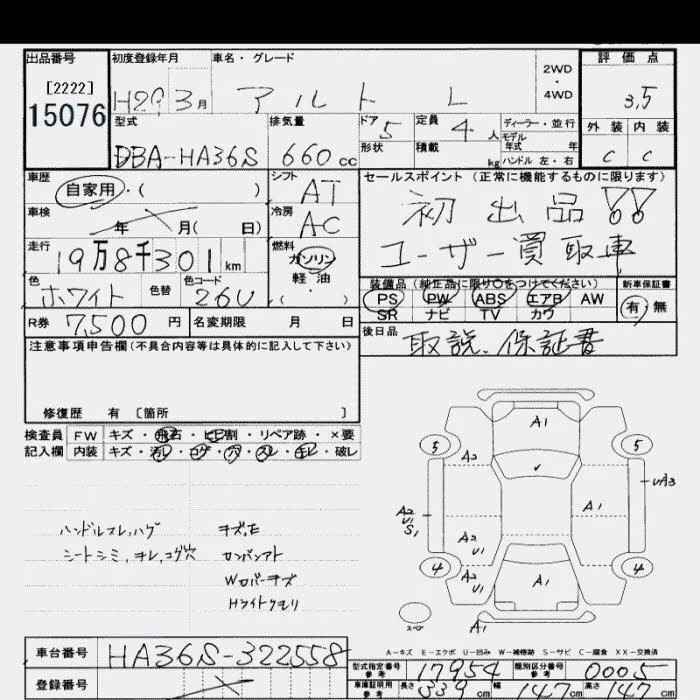 出品番号 初度登録年月 車名・グレード 2WD・4WD 評価点
[2222] 15076 H29 3月 アルト L 3.5
型式 排気量 ドア 5 定員 4人 ディーラー・並行 外装 内装
DBA-HA36S 660cc 形状 積載 kg モデル年式 年 ハンドル 左・右 C C
車歴 自家用・( ) シフト AT セールスポイント (正常に機能するものに限ります)
車検 年 月( 日) 冷房 AC 初出品!!
走行 19万8千301km 燃料 ガソリン・軽油・( ) ユーザー買取車
色 ホワイト 色替 色コード 26U
装備品 (純正品に限り○をつけてください) 新車保証書
PS PW ABS エアB AW 有・無
SR ナビ TV カワ
R券 7,500円 名変期限 月 日 後日品 取説、保証書
注意事項申告欄(不具合内容等は具体的に記入して下さい)
修復歴 有 [箇所 ]
検査員 FW キズ・飛石・ヒビ割・リペア跡・×要
記入欄 内装 キズ・汚レ・コゲ・穴・スレ・モレ・破レ
A1
5 5
A2
A1
A2 U1 S1
A2 U1
A2 U1
4 4
A1
A1
スペア
ハンドルスレ,ハゲ キズ,E
シートシミ,ヨレ,コゲ穴 カンバンアト
Wカバーキズ
Hライトクモリ
A-キズ E-エクボ U-凹み W-補修跡 S-サビ C-腐食 XX-交換済
車台番号 HA36S-322558
登録番号
型式指定番号 参考 17954 類別区分番号 参考 0005
車庫証明用 参考 長さ 339cm 幅 147cm 高さ cm